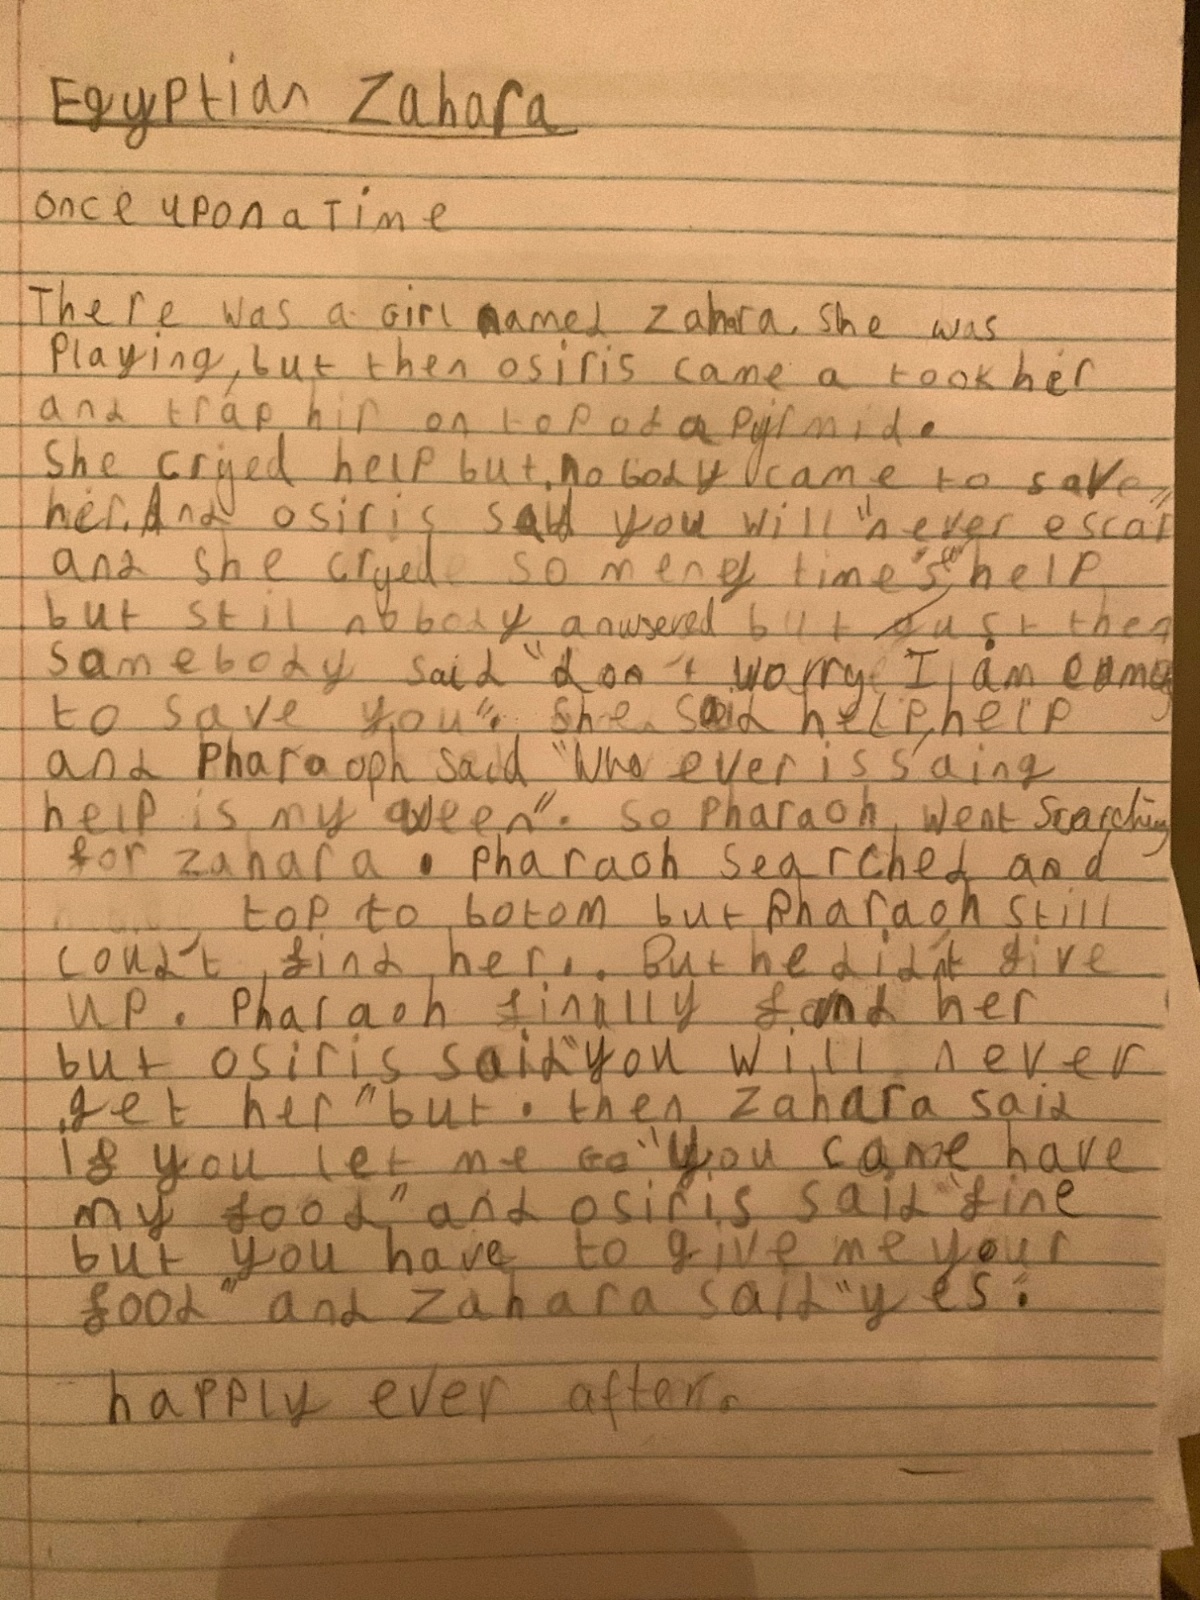 Egyptian Zahara
once upon a Time
There was a Girl named Zahara. She was
Playing, but then osiris came a took her
and trap hir on top of a Pyrmid.
She cryed help but nobody came to save
her. And osiris said you will "never escap"
and she cryed so meney time's "help
but stil nobody anwsered but just then
Somebody said "don't worry I am coming
to save you". She said help, help
and Pharaoph said "Who ever is saing
help is my qween". So Pharaoh went Searching
for zahara. Pharaoh searched and
top to botom but Pharaoh still
coud't find her.. But he did'nt give
up. Pharaoh finally found her
but osiris said "you will never
get her" but. then Zahara said
if you let me Go "you came have
my food" and osiris said "fine
but you have to give me your
food" and Zahara said "yes.
happly ever after.